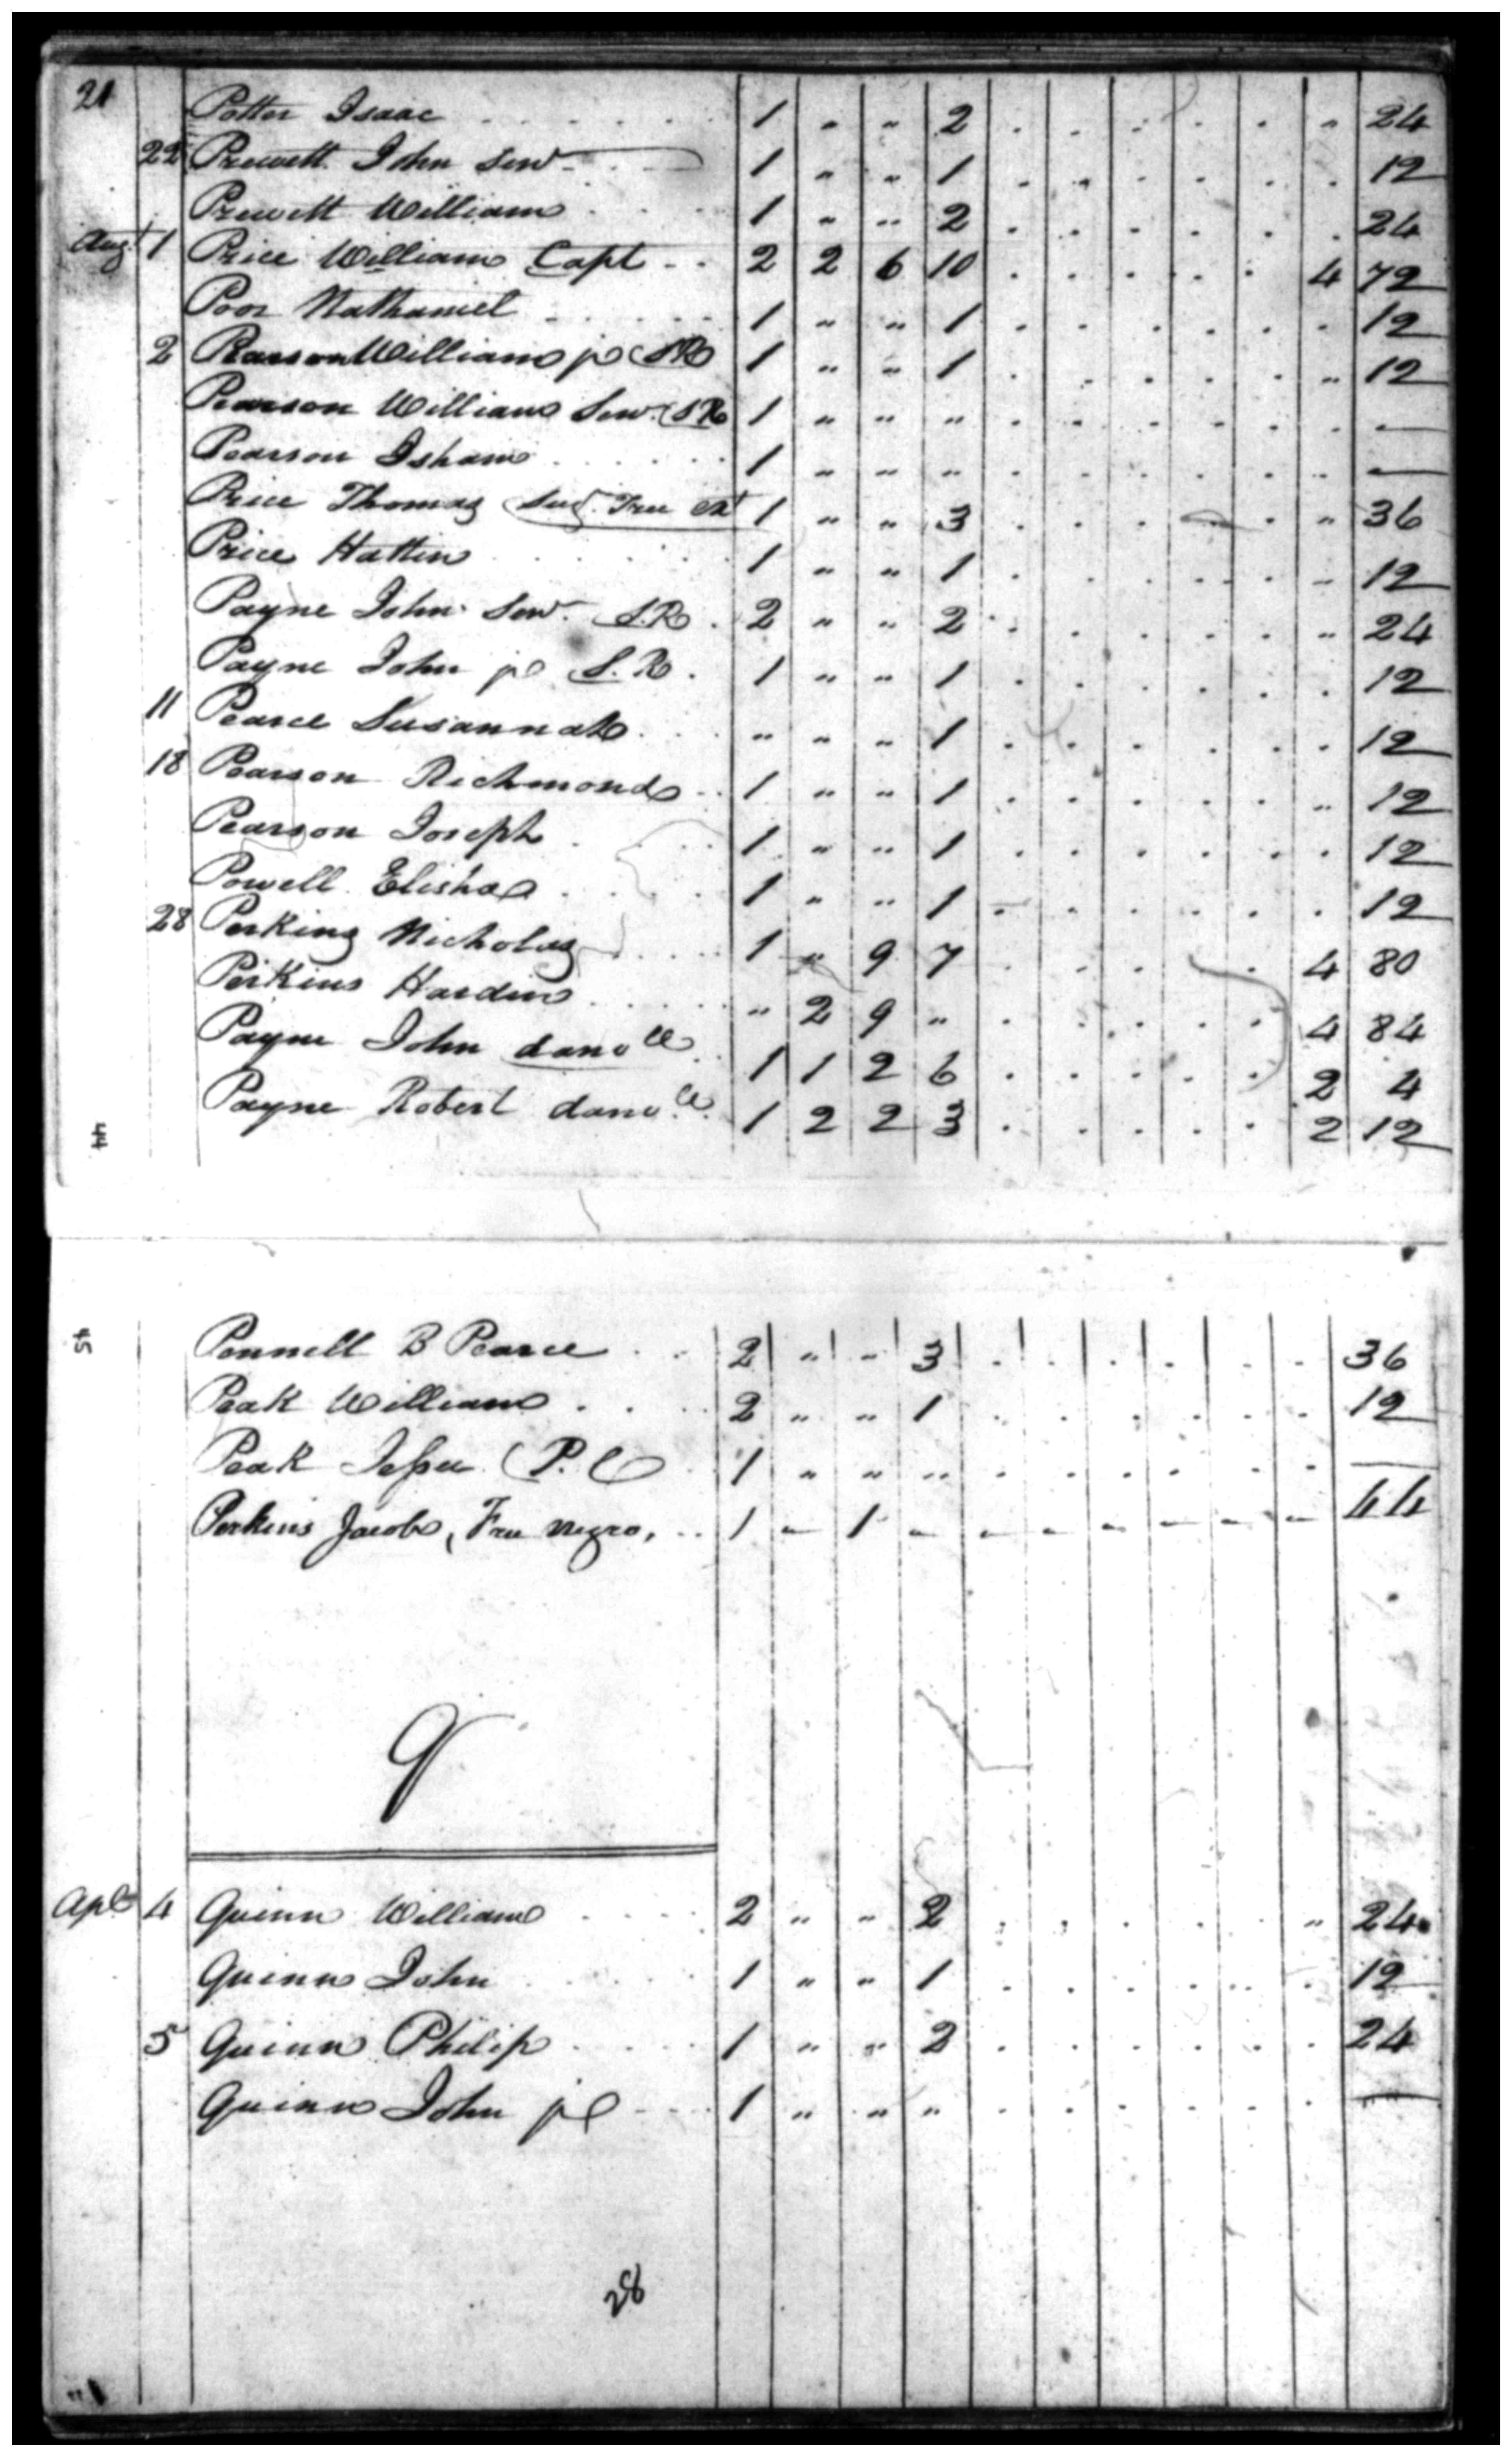 21 Potter Isaac 1 " " 2 . . . . . " 24
22 Prewett John Senr 1 " " 1 . . . . . . 12
Prewett William 1 " " 2 . . . . . . 24
Augt 1 Price William Capt 2 2 6 10 . . . . . 4 72
Poor Nathaniel 1 " " 1 . . . . . . 12
2 Pearson William jr SR 1 " " 1 . . . . . " 12
Pearson William Senr. SR 1 " " " . . . . . . —
Pearson Isham 1 " " " . . . . . " —
Price Thomas 1 " " 3 . . . . . " 36
Price Hatten 1 " " 1 . . . . . " 12
Payne John Senr. S.R. 2 " " 2 . . . . . " 24
Payne John jr S.R. 1 " " 1 . . . . . . 12
11 Pearce Susannah " " " 1 . . . . . . 12
18 Pearson Richmond 1 " " 1 . . . . . " 12
Pearson Joseph 1 " " 1 . . . . . . 12
Powell Elisha 1 " " 1 . . . . . . 12
28 Perkins Nicholas 1 " 9 7 . . . . . 4 80
Perkins Hardin " 2 9 " . . . . . 4 84
Payne John danvlle 1 1 2 6 . . . . . 2 4
Payne Robert danvlle 1 2 2 3 . . . . . 2 12
44
45
Ponnell B Pearce 2 " " 3 . . . . . . 36
Peak William 2 " " 1 . . . . . . 12
Peak Jesse (P. C 1 " " " . . . . . . —
Perkins Jacob, Free Negro, 1 - 1 - - - - - - - 44
Q
Apl 4 Quinn William 2 " " 2 . . . . . " 24
Quinn John 1 " " 1 . . . . . . 12
5 Quinn Philip 1 " " 2 . . . . . . 24
Quinn John jr 1 " " " . . . . . . —
28